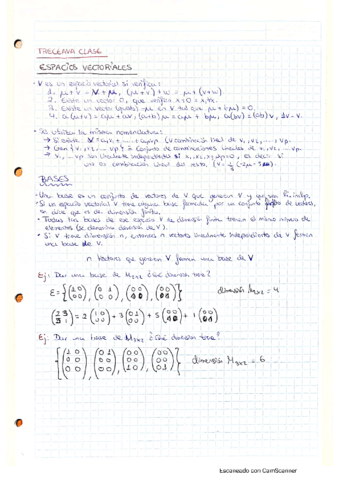 TRECEAVA CLASE
ESPACIOS VECTORIALES
• V es un espacio vectorial si verifica:
1. μ+v = v+μ, (μ+v)+w = μ+(v+w)
2. Existe un vector 0, que verifica
3. Existe un vector (opuesto) -μ en V tal que μ+(-μ)=0.
4. a(μ+v) = aμ+av, (a+b)μ = aμ + bμ, a(bv) = (ab)v, 1v=v.
• Se utiliza la misma nomenclatura:
→ Si existe v = a₁v₁ + ... + aₚvₚ (v combinación lineal de v₁, v₂, ... vₚ.
→ Gen {v₁, v₂ ... vₚ} = Conjunto de combinaciones lineales de v₁, v₂, ... vₚ.
→ v₁, ... vₚ son linealmente independientes si
una es combinación lineal del resto.
BASES
• Una base es un conjunto de vectores de V que generan V y que son lin. indep.
• Si un espacio vectorial V tiene alguna base formada por un conjunto finito de vectores,
se dice que es de dimensión finita.
• Todas las bases de ese espacio V de dimensión finita tienen el mismo número de
elementos (se denomina dimensión de V).
• Si V tiene dimensión n, entonces n vectores linealmente independientes de V forman
una base de V.
n vectores que generan V forman una base de V
Ej: Dar una base de M₂ₓ₂ ¿Qué dimensión tiene?
E = {(1 0 / 0 0), (0 1 / 0 0), (0 0 / 1 0), (0 0 / 0 1)} dimensión M₂ₓ₂ = 4
(2 3 / 5 1) = 2(1 0 / 0 0) + 3(0 1 / 0 0) + 5(0 0 / 1 0) + 1(0 0 / 0 1)
Ej: Dar una base de M₃ₓ₂ ¿Qué dimensión tiene?
dimensión M₃ₓ₂ = 6
Escaneado con CamScanner